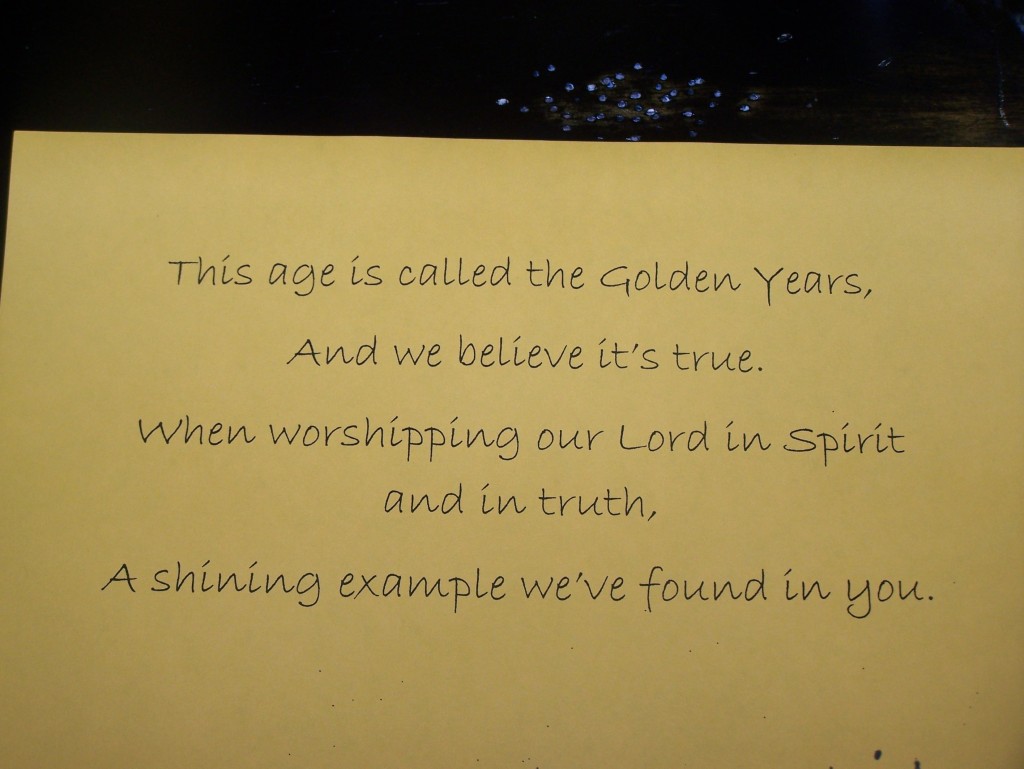 This age is called the Golden Years,
And we believe it's true.
When worshipping our Lord in Spirit
and in truth,
A shining example we've found in you.